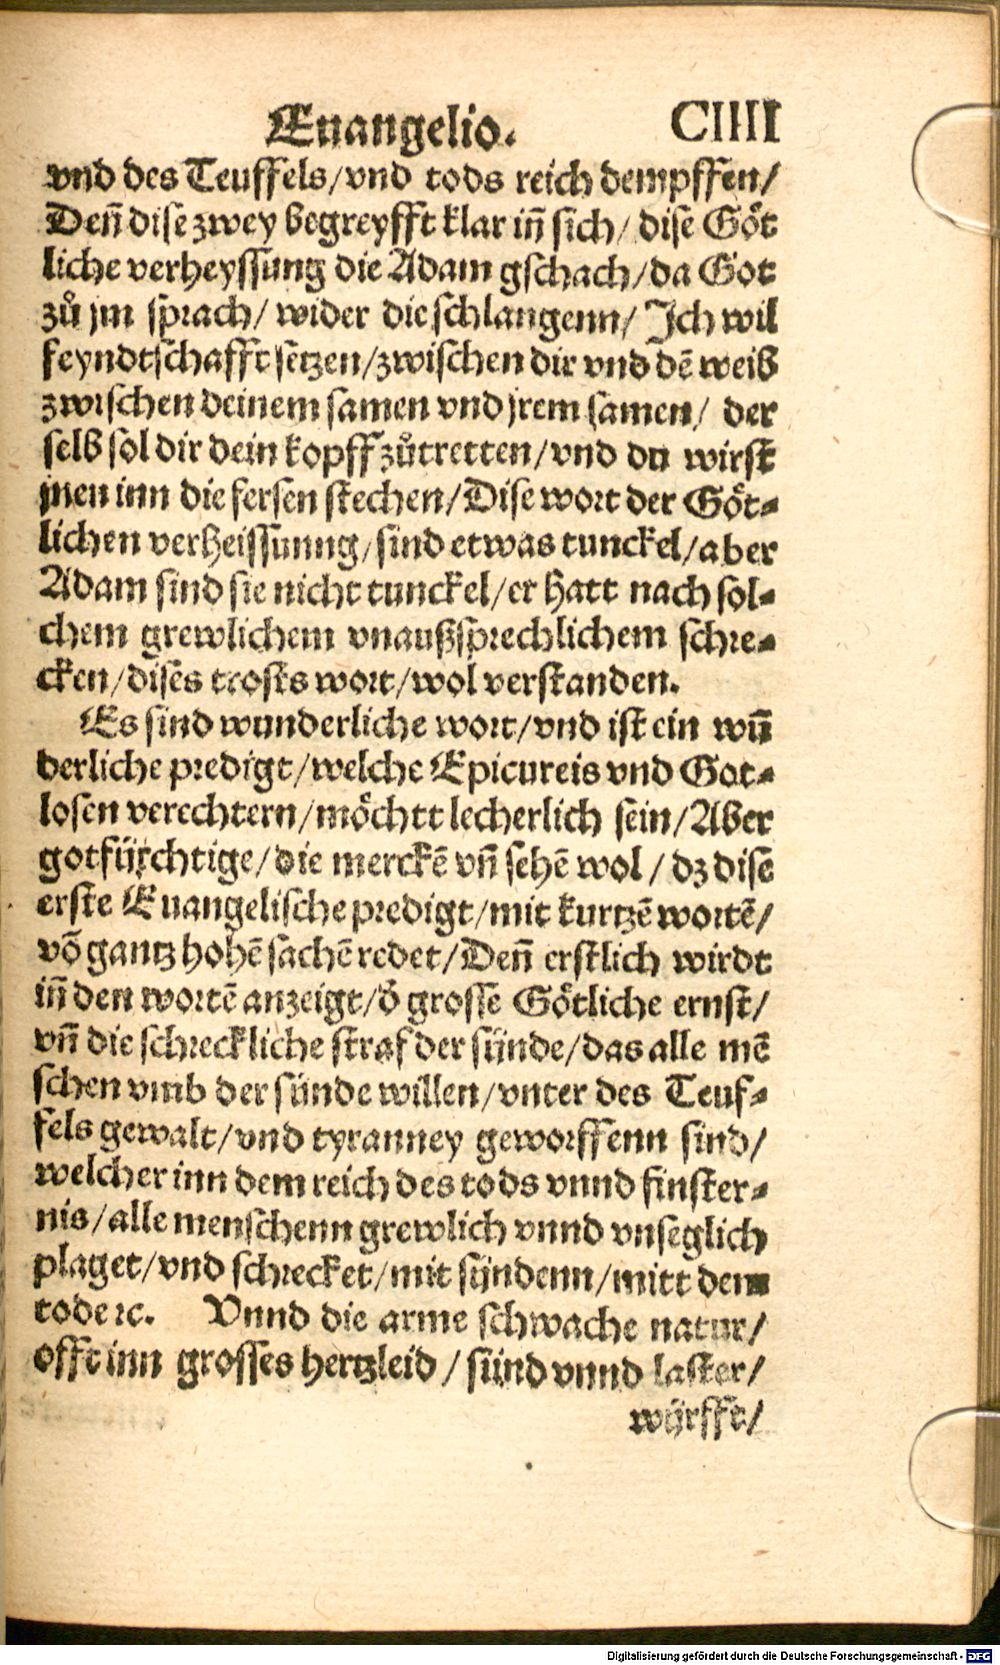 Euangelio. CIIII
vnd des Teuffels/vnd tods reich dempffen/
Deñ dise zwey begreyfft klar iñ sich/ dise Göt
liche verheyssung die Adam gschach/da Got
zů jm sprach/ wider die schlangenn/ Ich wil
feyndtschafft setzen/zwischen dir vnd dē weib
zwischen deinem samen vnd jrem samen/ der
selb sol dir dein kopff zůtretten/vnd du wirst
jnen inn die fersen stechen/Dise wort der Göt-
lichen verheissunng/sind etwas tunckel/aber
Adam sind sie nicht tunckel/er hatt nach sol-
chem grewlichem vnaußsprechlichem schre-
cken/dises trosts wort/wol verstanden.
Es sind wunderliche wort/vnd ist ein wũ
derliche predigt/welche Epicureis vnd Got-
losen verechtern/möchtt lecherlich sein/Aber
gotfürchtige/die merckē vñ sehē wol / dz dise
erste Euangelische predigt/mit kurtzē wortē/
võ gantz hohē sachē redet/Deñ erstlich wirdt
iñ den wortē anzeigt/d̕ grosse Götliche ernst/
vñ die schreckliche straf der sünde/das alle mē
schen vmb der sünde willen/vnter des Teuf-
fels gewalt/vnd tyranney geworffenn sind/
welcher inn dem reich des tods vnnd finster-
nis/alle menschenn grewlich vnnd vnseglich
plaget/vnd schrecket/mit sündenn/mitt dem
tode ꝛc. Vnnd die arme schwache natur/
offt inn grosses hertzleid / sünd vnnd laster/
würfft/
Digitalisierung gefördert durch die Deutsche Forschungsgemeinschaft - DFG